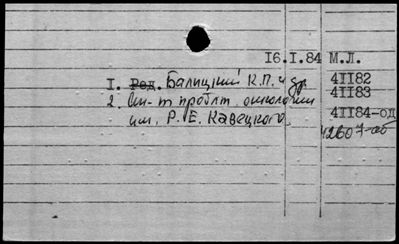 16.I.84 М.Л.
I. Ред. Балицкий К.П. и др 4II82
4II83
2. Ин-т пробл. онкологии
им. Р.Е. Кавецкого 4II84-од
42607-аб